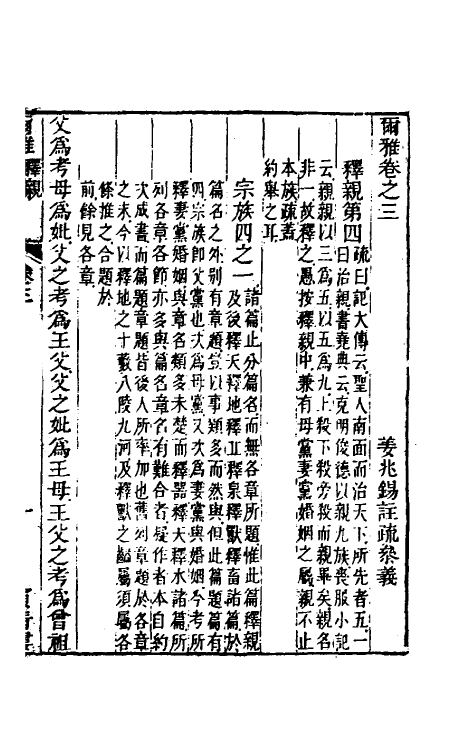 爾雅卷之三
姜兆錫註疏叅義
釋親第四
疏曰記大傳云聖人南面而治天下所先者五一
曰治親書堯典云克明俊德以親九族喪服小記
云親親以三為五以五為九上殺下殺旁殺而親畢矣親名
非一故釋之愚按釋親中兼有母黨妻黨婚姻之屬親不止
本族疏蓋
約舉之耳
宗族四之一
諸篇止分篇名而無各章所題惟此篇釋親
及後釋天釋地釋丘釋泉釋獸釋畜諸篇於
篇名之外别有章題豈以事類多而然與但此篇題有
四宗族即父黨也次為母黨又次為妻黨與婚姻今考所
釋妻黨婚姻與章名類多未楚而釋器釋天釋水諸篇所
列各章各節亦多與篇名章名有難合者疑作者本自約
次成書而篇題章題皆後人所率加也舊列章題於各章
之末今以釋地之十藪八陵九河及釋獸之齸屬須屬各
條推之合題於
前餘見各章
父為考母為妣父之考為王父父之妣為王母王父之考為曾祖
爾雅 釋親
卷三
一